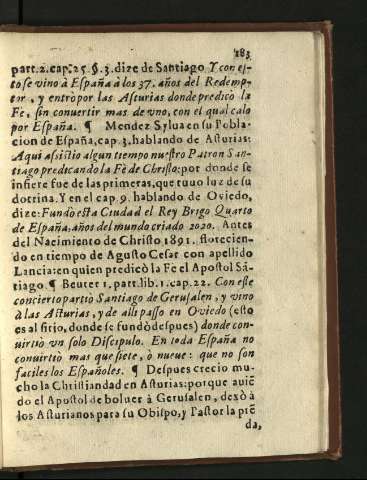 183
part.2.cap.25.§.3.dize de Santiago Y con es-
to se vino à España à los 37. años del Redemp-
tor, y entrò por las Asturias donde predicò la
Fe, sin convertir mas de vno, con el qual calo
por España. ¶ Mendez Sylua en su Pobla-
cion de España, cap.3. hablando de Asturias:
Aqui assistio algun tiempo nuestro Patron San-
tiago predicando la Fè de Christo: por donde se
infiere fue de las primeras, que tuuo luz de su
dotrina. Y en el cap 9. hablando de Oviedo,
dize: Fundò esta Ciudad el Rey Brigo Quarto
de España, años del mundo criado 2020. Antes
del Nacimiento de Christo 1891. florecien-
do en tiempo de Agusto Cesar con apellido
Lancia: en quien predicò la Fe el Apostol Sã-
tiago. ¶ Beuter 1. part. lib. 1. cap. 22. Con este
concierto partiò Santiago de Gerusalen, y vino
à las Asturias, y de alli passo en Oviedo (esto
es al sitio, donde se fundò despues) donde con-
uirtiò vn solo Discipulo. En toda España no
conuirtiò mas que siete, ò nueue: que no son
faciles los Españoles. ¶ Despues crecio mu-
cho la Christiandad en Asturias: porque auiẽ
do el Apostol de boluer à Gerusalen, dexò à
los Asturianos para su Obispo, y Pastor la prẽ
da,